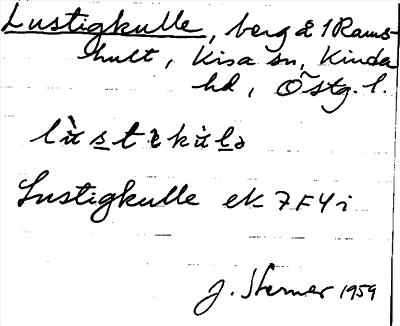 Lustigkulle, berg å 1 Rams-
hult, Kisa sn, Kinda
hd, Östg. l.
lu̇̀s̱tɩku̇̀ḻə
Lustigkulle ek 7F4i
J. Sterner 1959